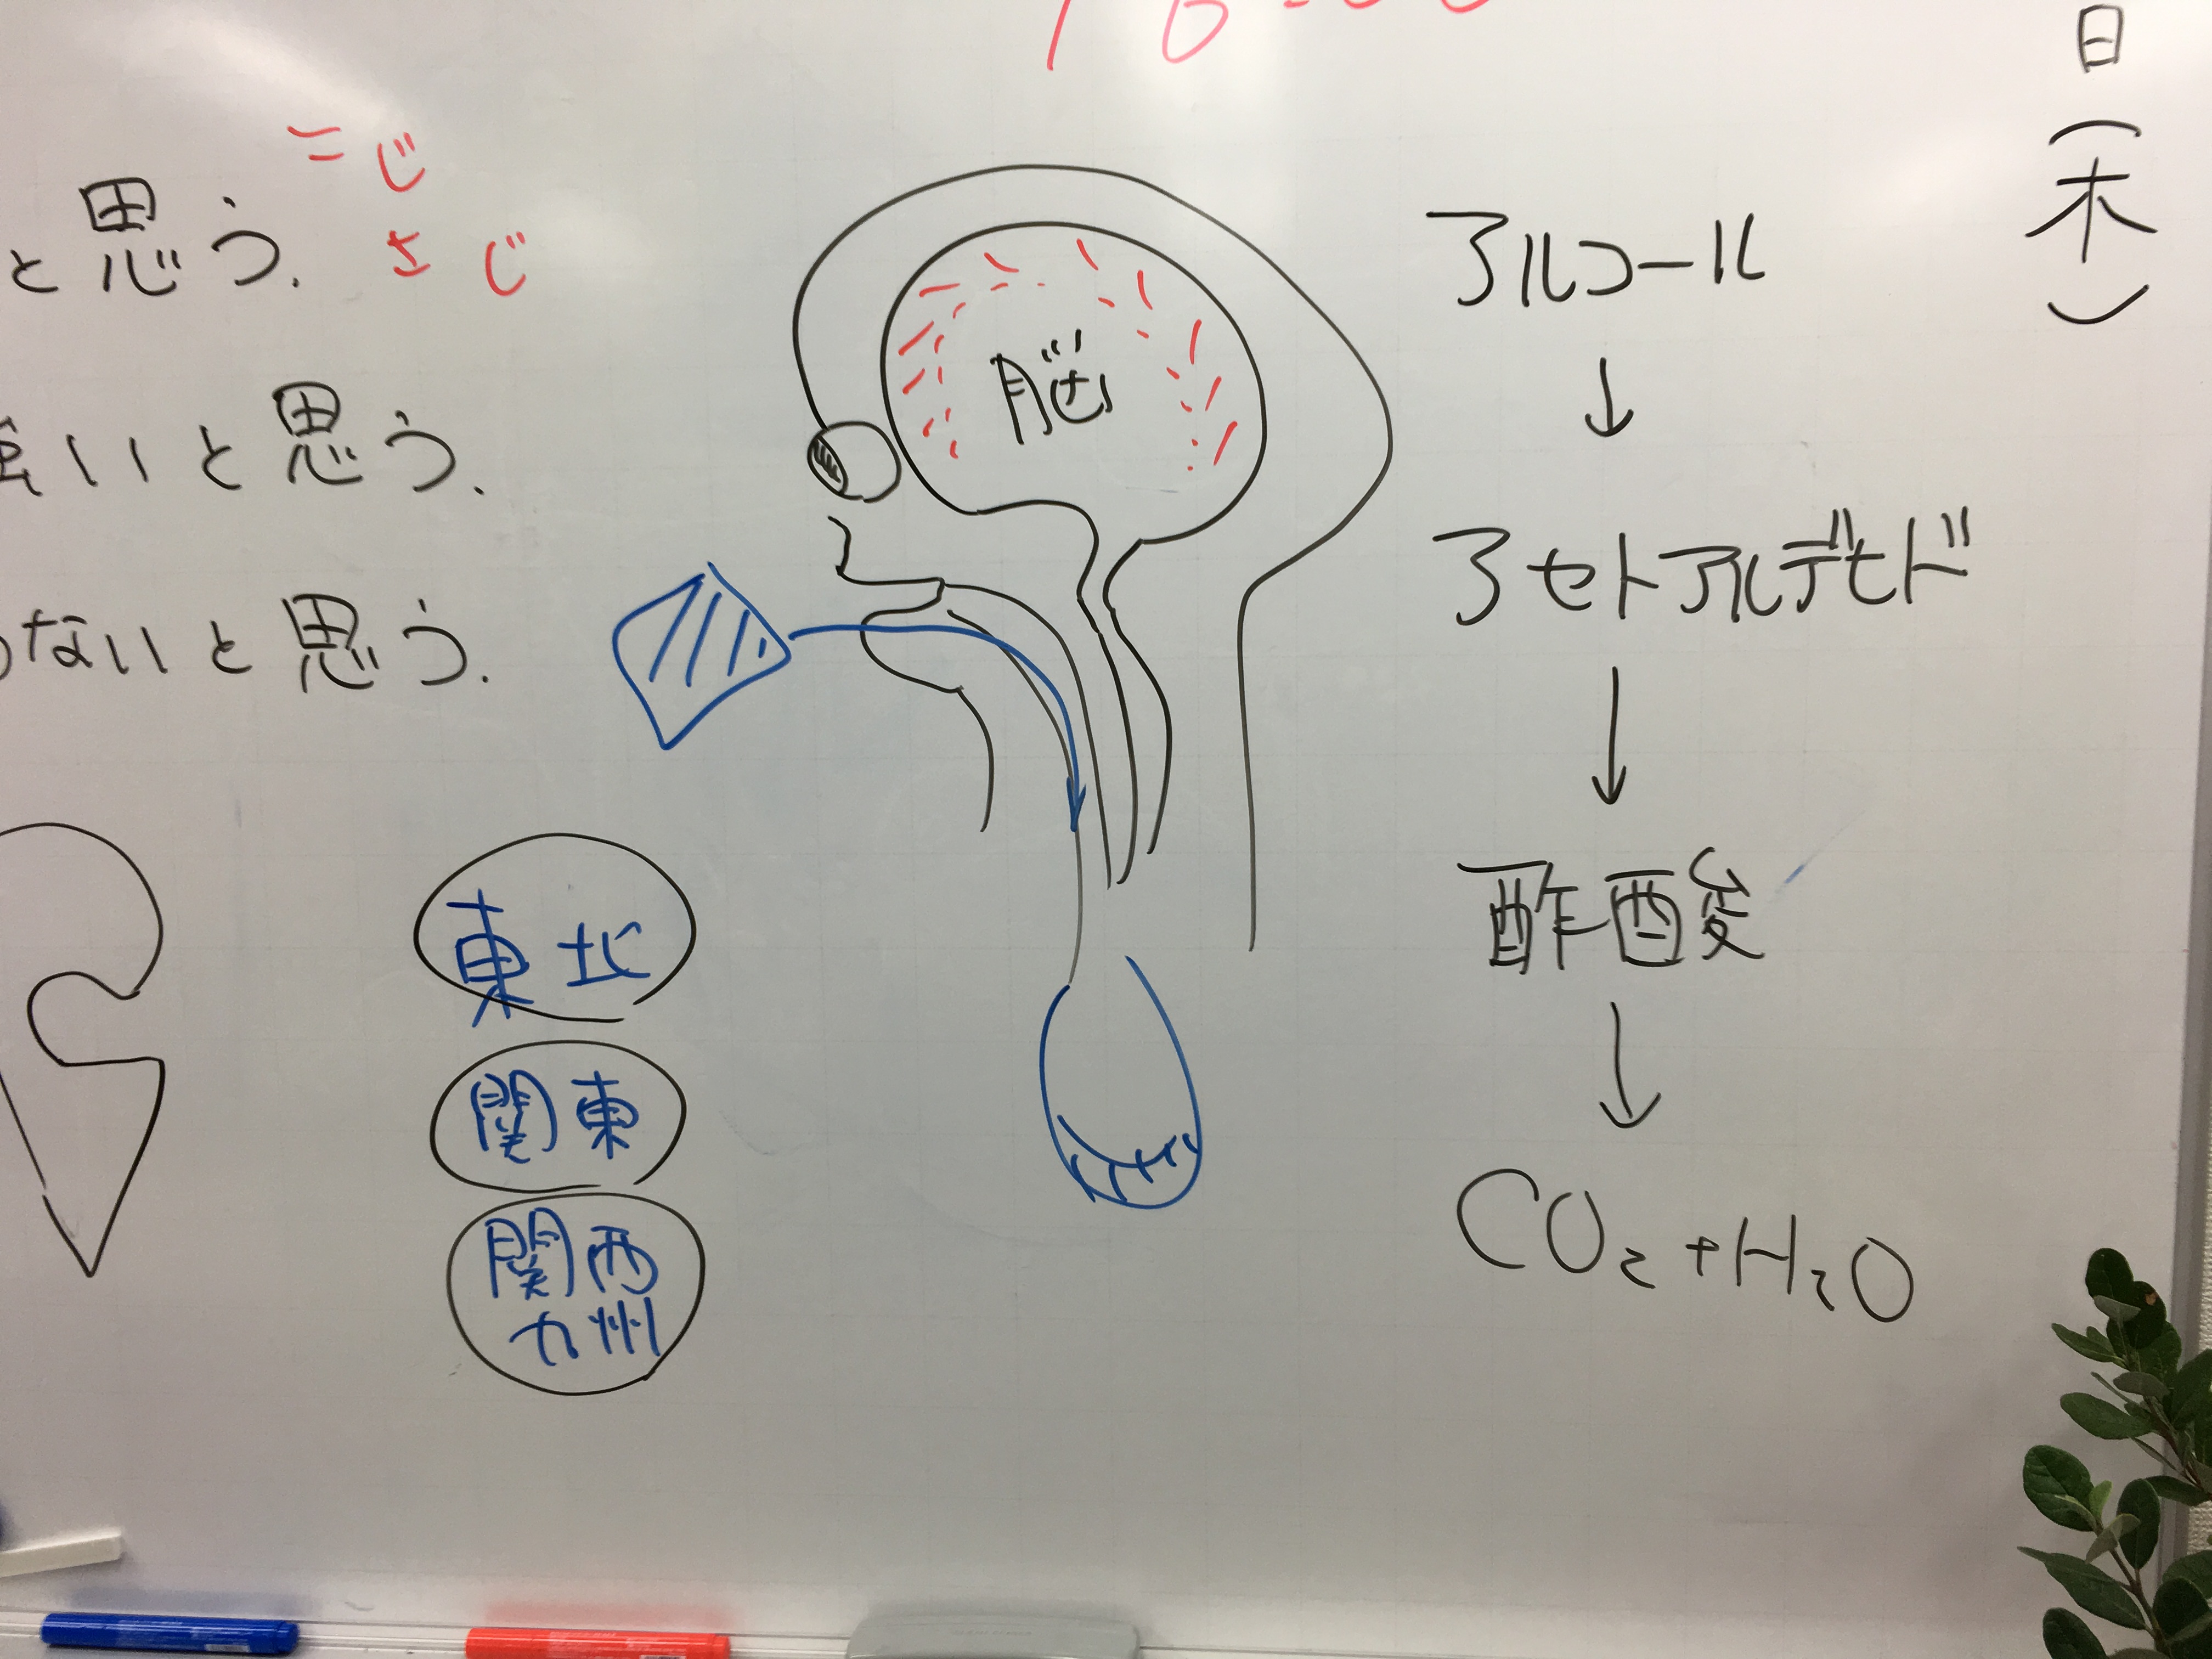 日(木)
こじ
さじ
と思う.
いと思う.
ないと思う.
脳
東北
関東
関西
九州
アルコール
↓
アセトアルデヒド
↓
酢酸
↓
CO₂+H₂O